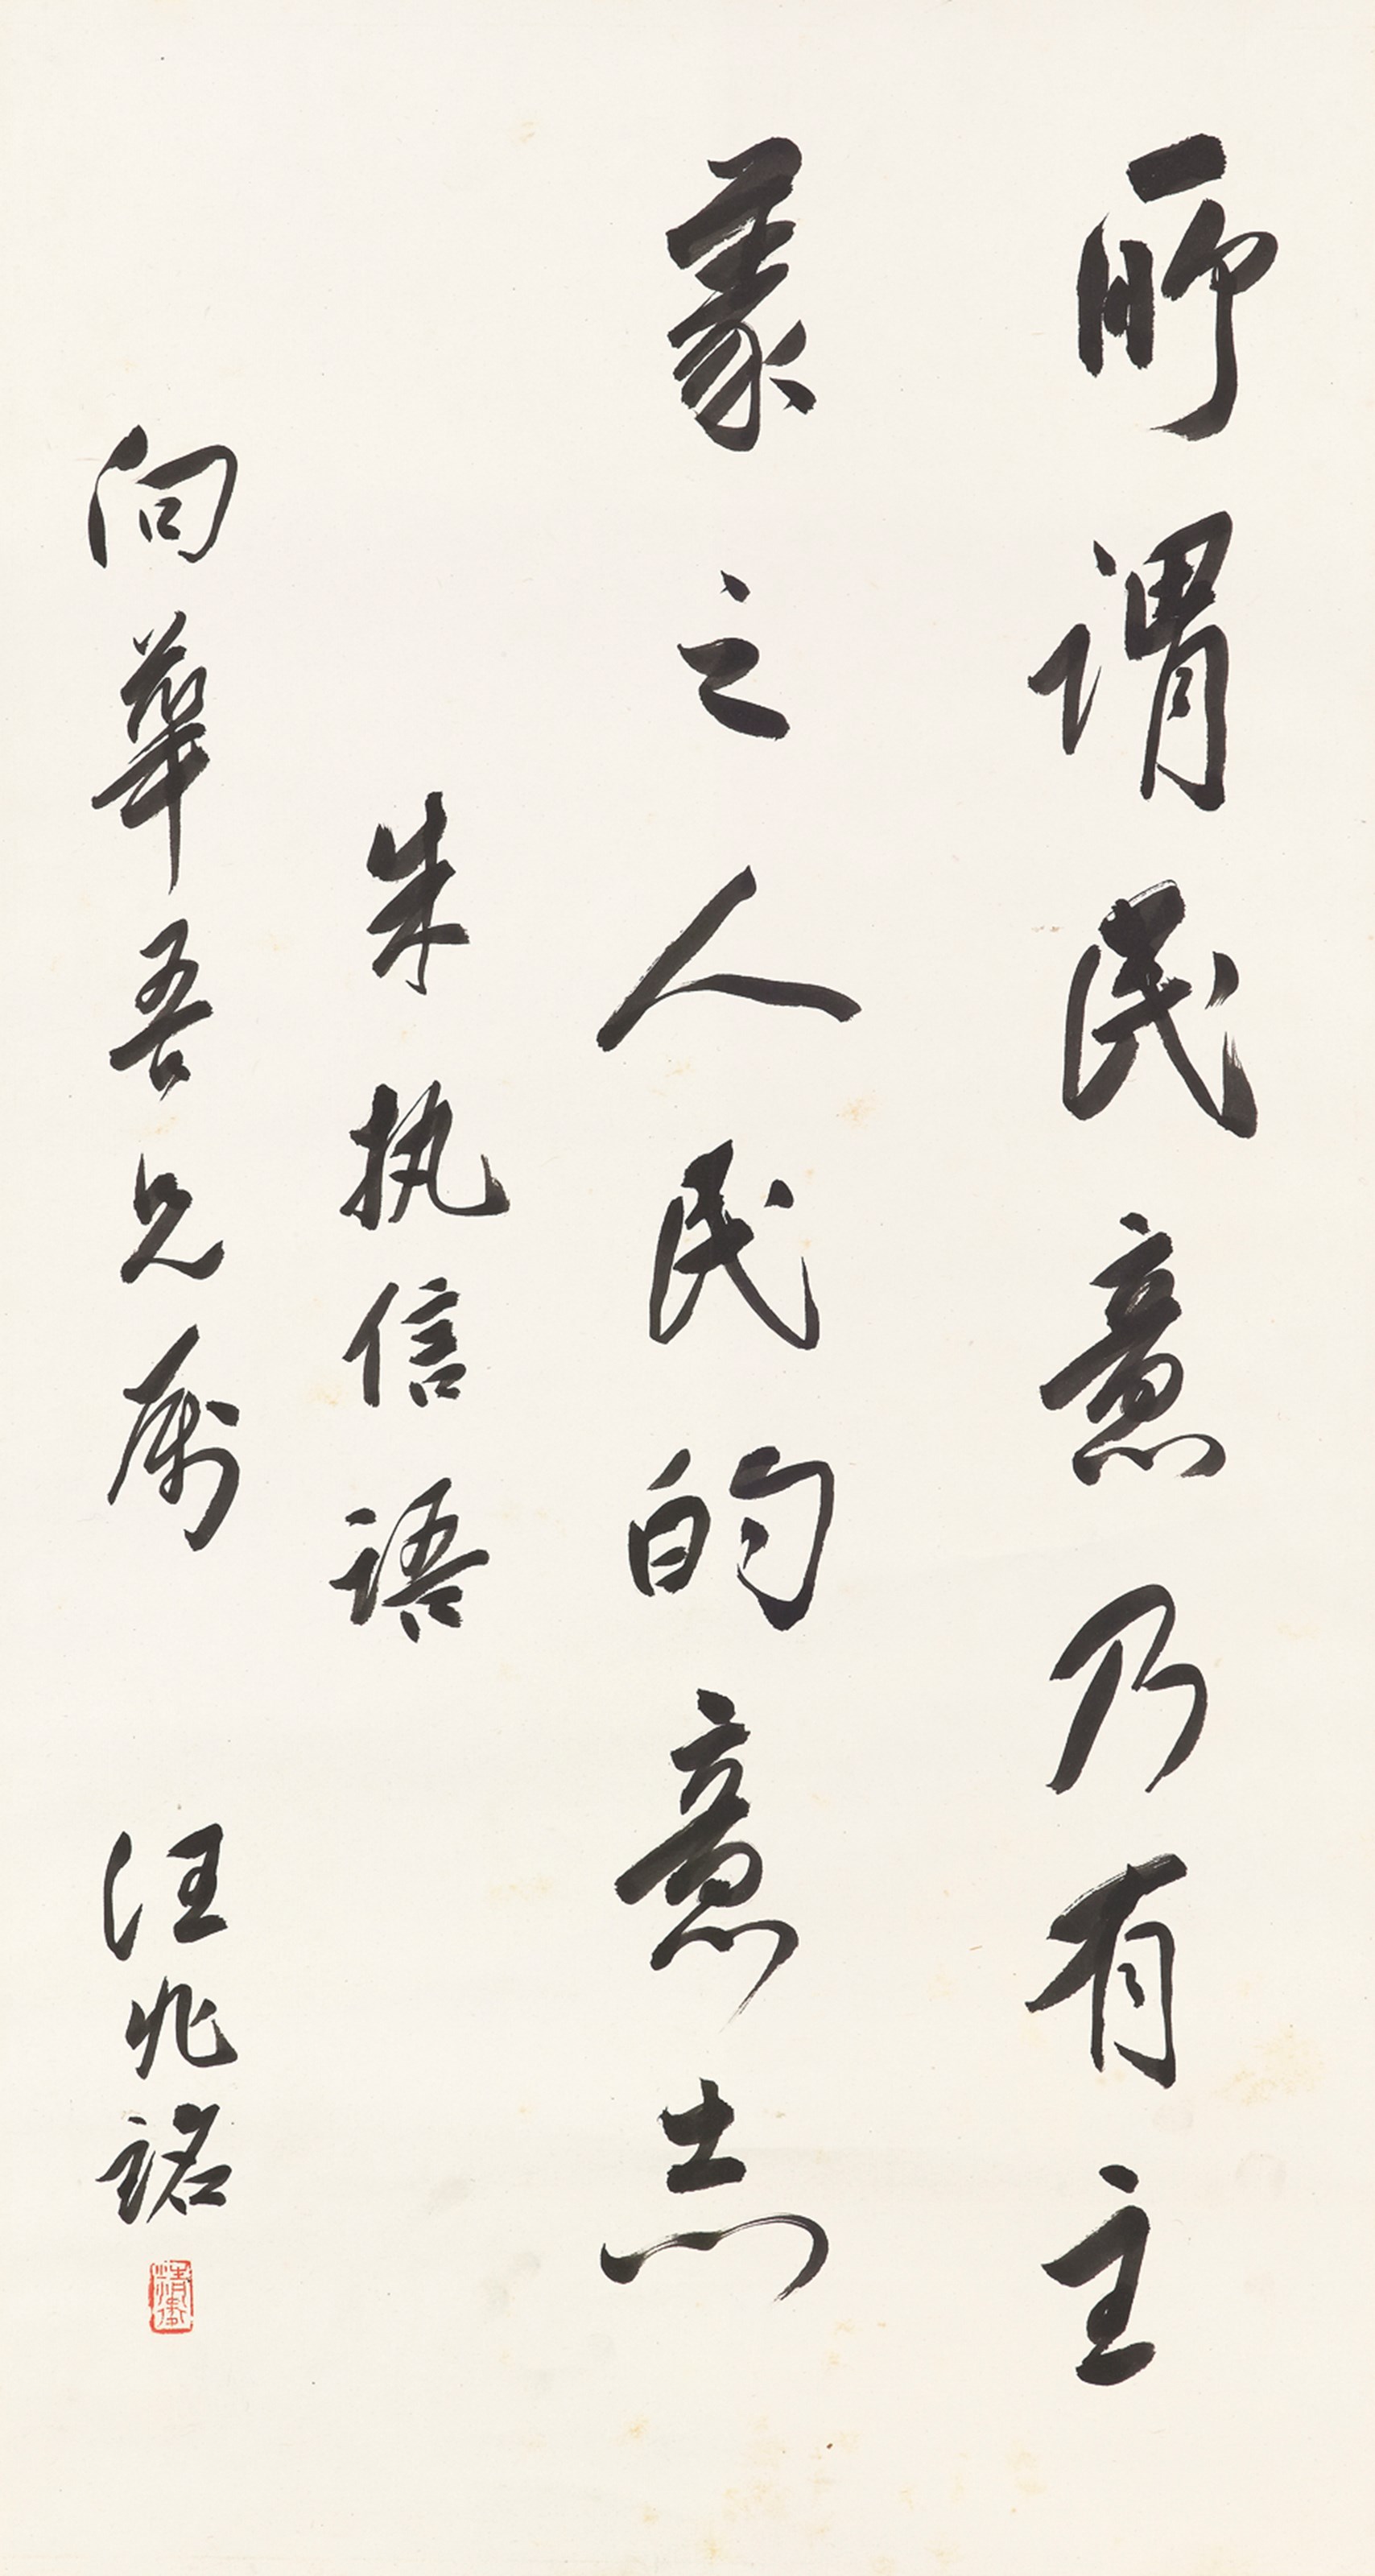 所謂民意乃有主
義之人民的意志
朱执信語
向華吾兄属 汪兆銘
精衛